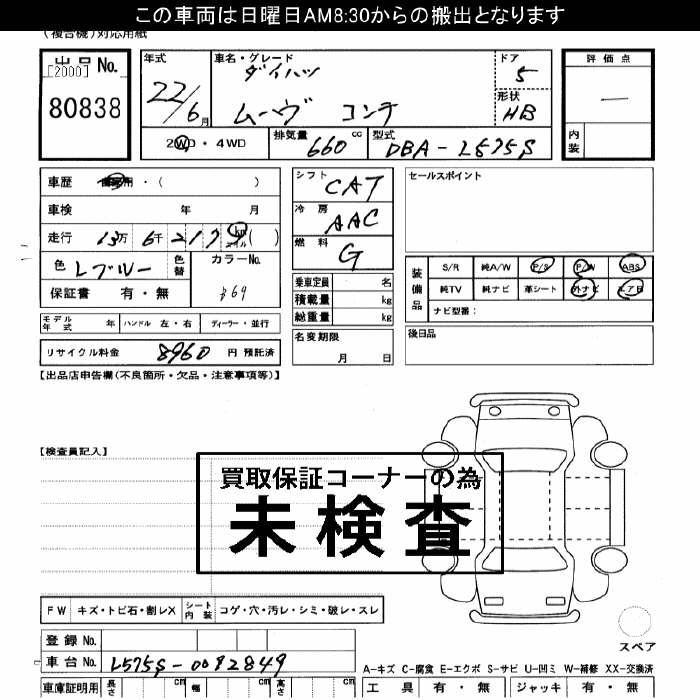 この車両は日曜日AM8:30からの搬出となります
(複合機)対応用紙
出品No.
[2000]
80838
年式
22/6月
車名・グレード
ダイハツ
ムーヴ コンテ
ドア
5
形状
HB
2WD・4WD
排気量 660 cc
型式 DBA-L575S
評価点
—
内装
車歴 自家用・( )
車検 年 月
走行 13万 6千 217 km マイル ( )
色 Lブルー
色替
カラーNo.
保証書 有・無
シフト CAT
冷房 AAC
燃料 G
セールスポイント
乗車定員 名
積載量 kg
総重量 kg
装備品
S/R 純A/W P/S P/W ABS
純TV 純ナビ 革シート 外ナビ エアB
ナビ型番:
モデル年式 年 ハンドル 左・右 ディーラー・並行
名変期限
月 日
後日品
リサイクル料金 8960 円 預託済
【出品店申告欄(不良箇所・欠品・注意事項等)】
【検査員記入】
買取保証コーナーの為
未検査
FW キズ・トビ石・割レX
シート内装 コゲ・穴・汚レ・シミ・破レ・スレ
スペア
登録No.
車台No. L575S-0082849
A-キズ C-腐食 E-エクボ S-サビ U-凹ミ W-補修 XX-交換済
車庫証明用 長さ cm 幅 cm 高さ cm
工具 有・無 ジャッキ 有・無